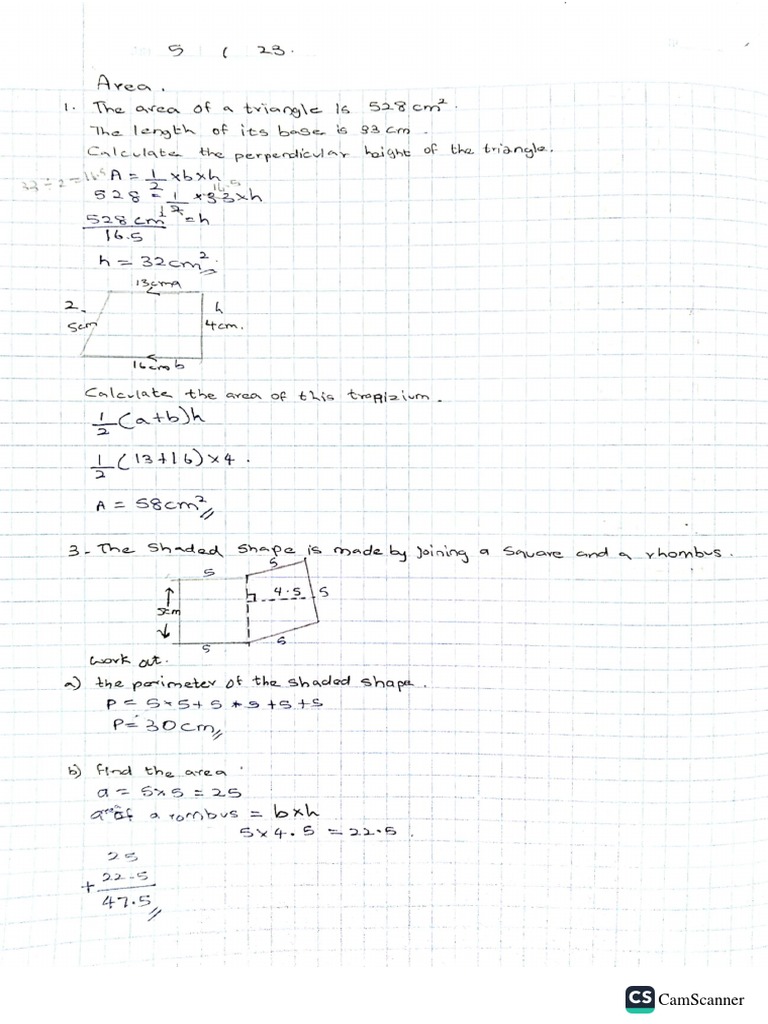 5 ( 23.
Area.
1. The area of a triangle is 528cm².
The length of its base is 33 cm.
Calculate the perpendicular height of the triangle.
33÷2=16.5 A = 1/2 ×b×h
16.5
528 = 1/2 ×33×h
528 cm² = h
16.5
h = 32cm²
13cm a
2. h
5cm 4cm.
16cm b
Calculate the area of this tropizium.
1/2 (a+b)h
1/2 (13+16)×4.
A = 58cm²
3- The shaded shape is made by joining a square and a rhombus.
5 5
5cm 4.5 5
5 5
work out.
a) the perimeter of the shaded shape.
P = 5+5+5+5+5+5
P= 30cm
b) find the area
a = 5×5 = 25
area of a rombus = b×h
5×4.5 = 22.5
25
+ 22.5
47.5
CS CamScanner